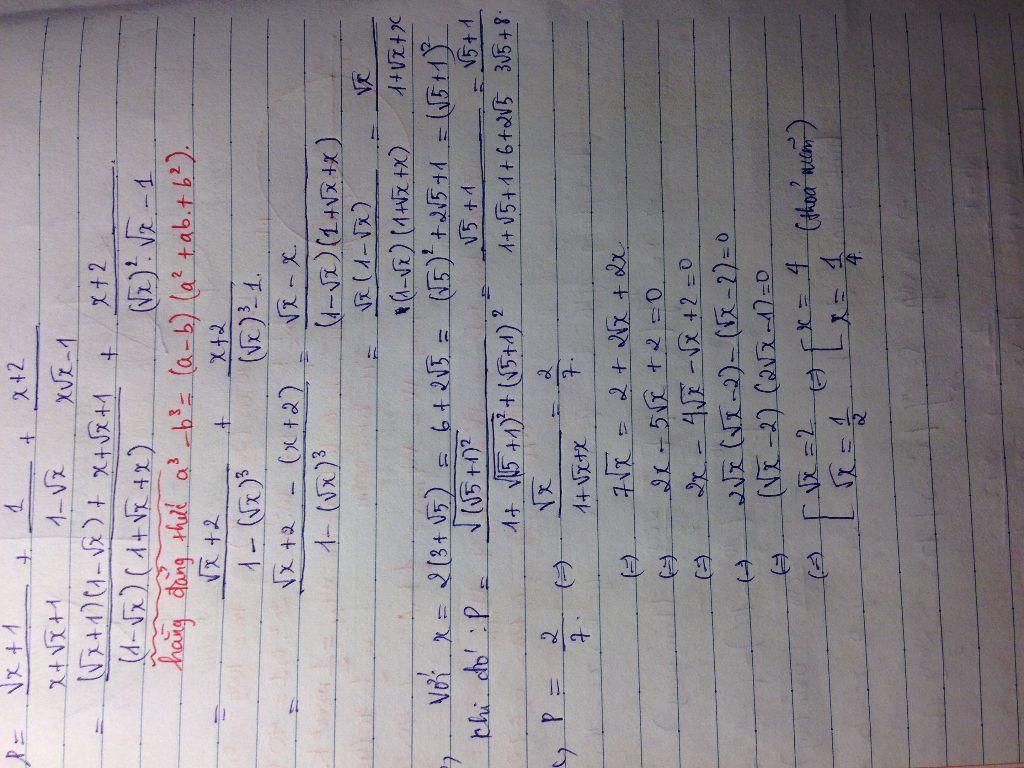 P = (√x + 1)/(x + √x + 1) + 1/(1 - √x) + (x + 2)/(x√x - 1)
= ((√x + 1)(1 - √x) + x + √x + 1)/((1 - √x)(1 + √x + x)) + (x + 2)/((√x)². √x - 1
hằng đẳng thức a³ - b³ = (a - b)(a² + ab. + b²).
= (√x + 2)/(1 - (√x)³) + (x + 2)/((√x)³ - 1.
= (√x + 2 - (x + 2))/(1 - (√x)³) = (√x - x)/((1 - √x)(1 + √x + x))
= √x(1 - √x)/((1 - √x)(1 + √x + x)) = √x/(1 + √x + x
) Với x = 2(3 + √5) = 6 + 2√5 = (√5)² + 2√5 + 1 = (√5 + 1)²
khi đó : P = √(√5 + 1)²/(1 + √(√5 + 1)² + (√5 + 1)²) = (√5 + 1)/(1 + √5 + 1 + 6 + 2√5) = (√5 + 1)/(3√5 + 8.
c, P = 2/7. (=) √x/(1 + √x + x) = 2/7.
(=) 7√x = 2 + 2√x + 2x
(=) 2x - 5√x + 2 = 0
(=) 2x - 4√x - √x + 2 = 0
(=) 2√x(√x - 2) - (√x - 2) = 0
(=) (√x - 2)(2√x - 1) = 0
(=) [ √x = 2 (=) [ x = 4 (thoả mãn)
√x = 1/2 x = 1/4